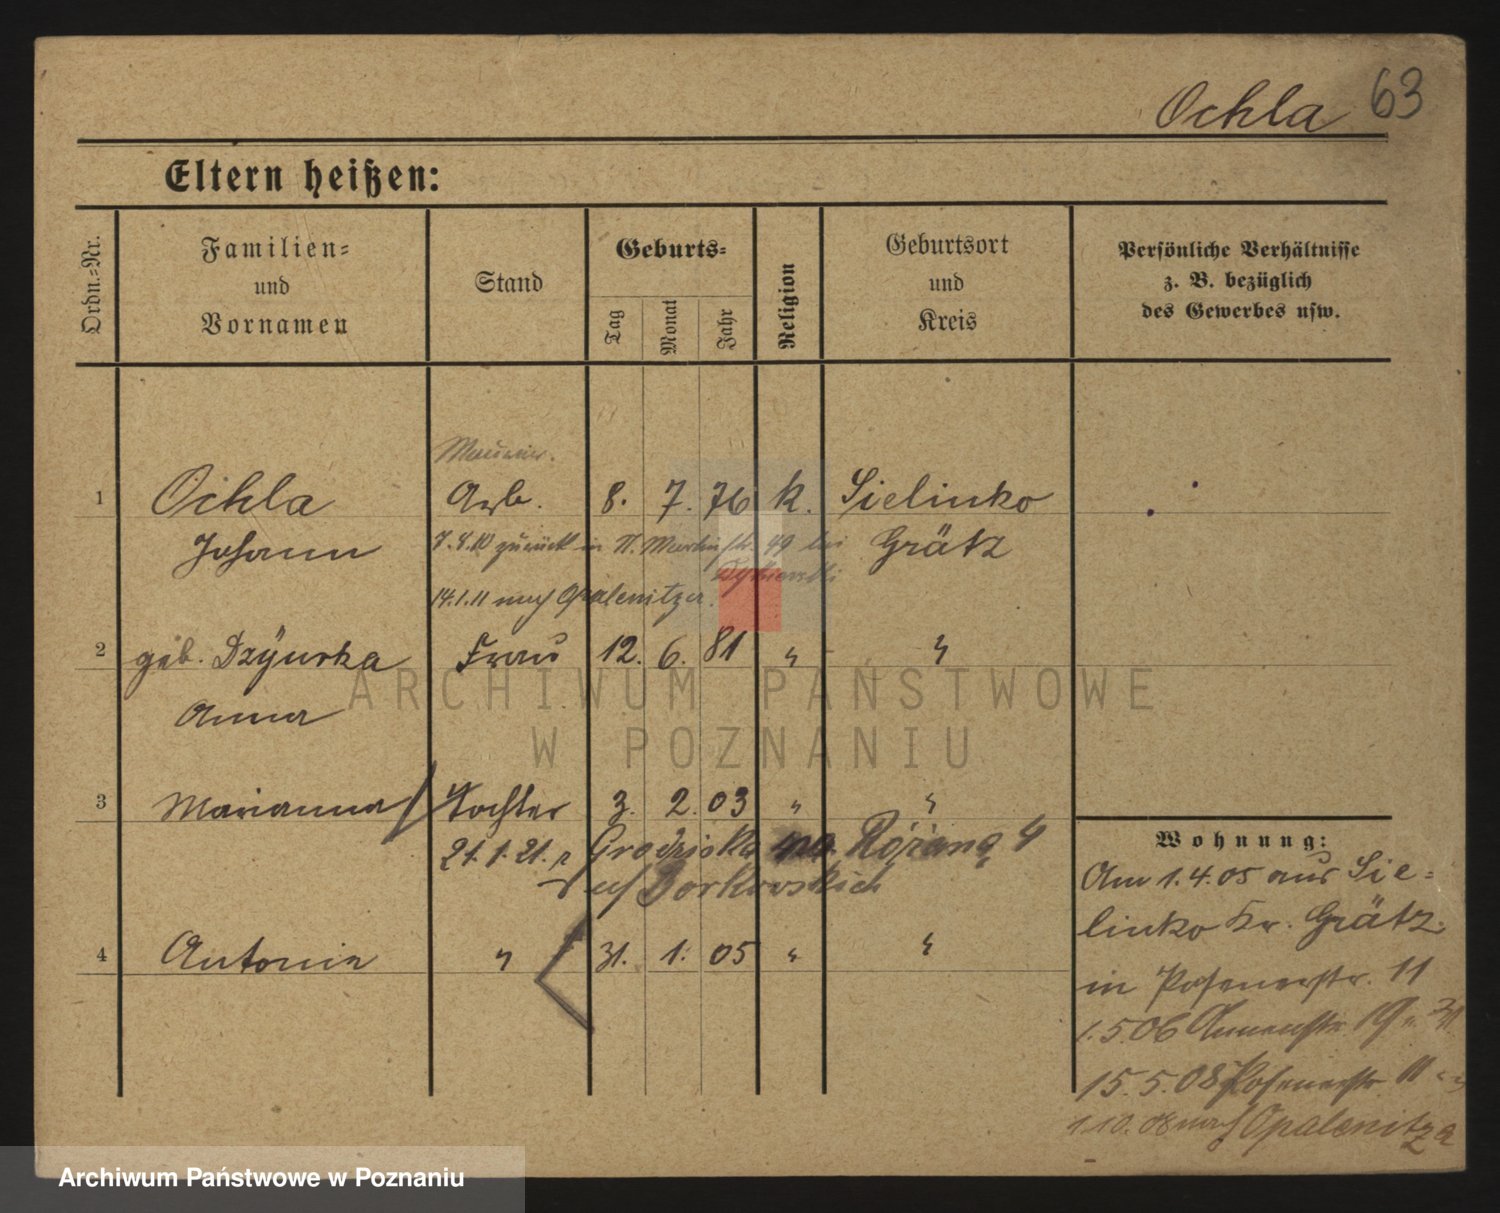 Ochla 63
Eltern heißen:
Ordn.=Nr.
Familien=
und
Vornamen
Stand
Geburts=
Tag
Monat
Jahr
Religion
Geburtsort
und
Kreis
Persönliche Verhältnisse
z. B. bezüglich
des Gewerbes usw.
Maurer.
1 Ochla Arb. 8. 7. 76 k. Sielinko
Johann Grätz
7.8.10 zurück in St. Martinstr. 49 bei
14.1.11 nach Opalenitza.
2 geb. Dzÿurka Frau 12. 6. 81 " "
Anna
3 Marianna Tochter 3. 2. 03 " "
21.1.21. z Grodziska na Różaną 4
Borkowskich
4 Antonie " 31. 1. 05 " "
Wohnung:
Am 1.4.05 aus Sie=
linko Kr. Grätz.
in Posenerstr. 11
1.5.06 Annenstr. 19
15.5.08 Posenerstr. 11
1.10.08 nach Opalenitza
ARCHIWUM PAŃSTWOWE
W POZNANIU
Archiwum Państwowe w Poznaniu